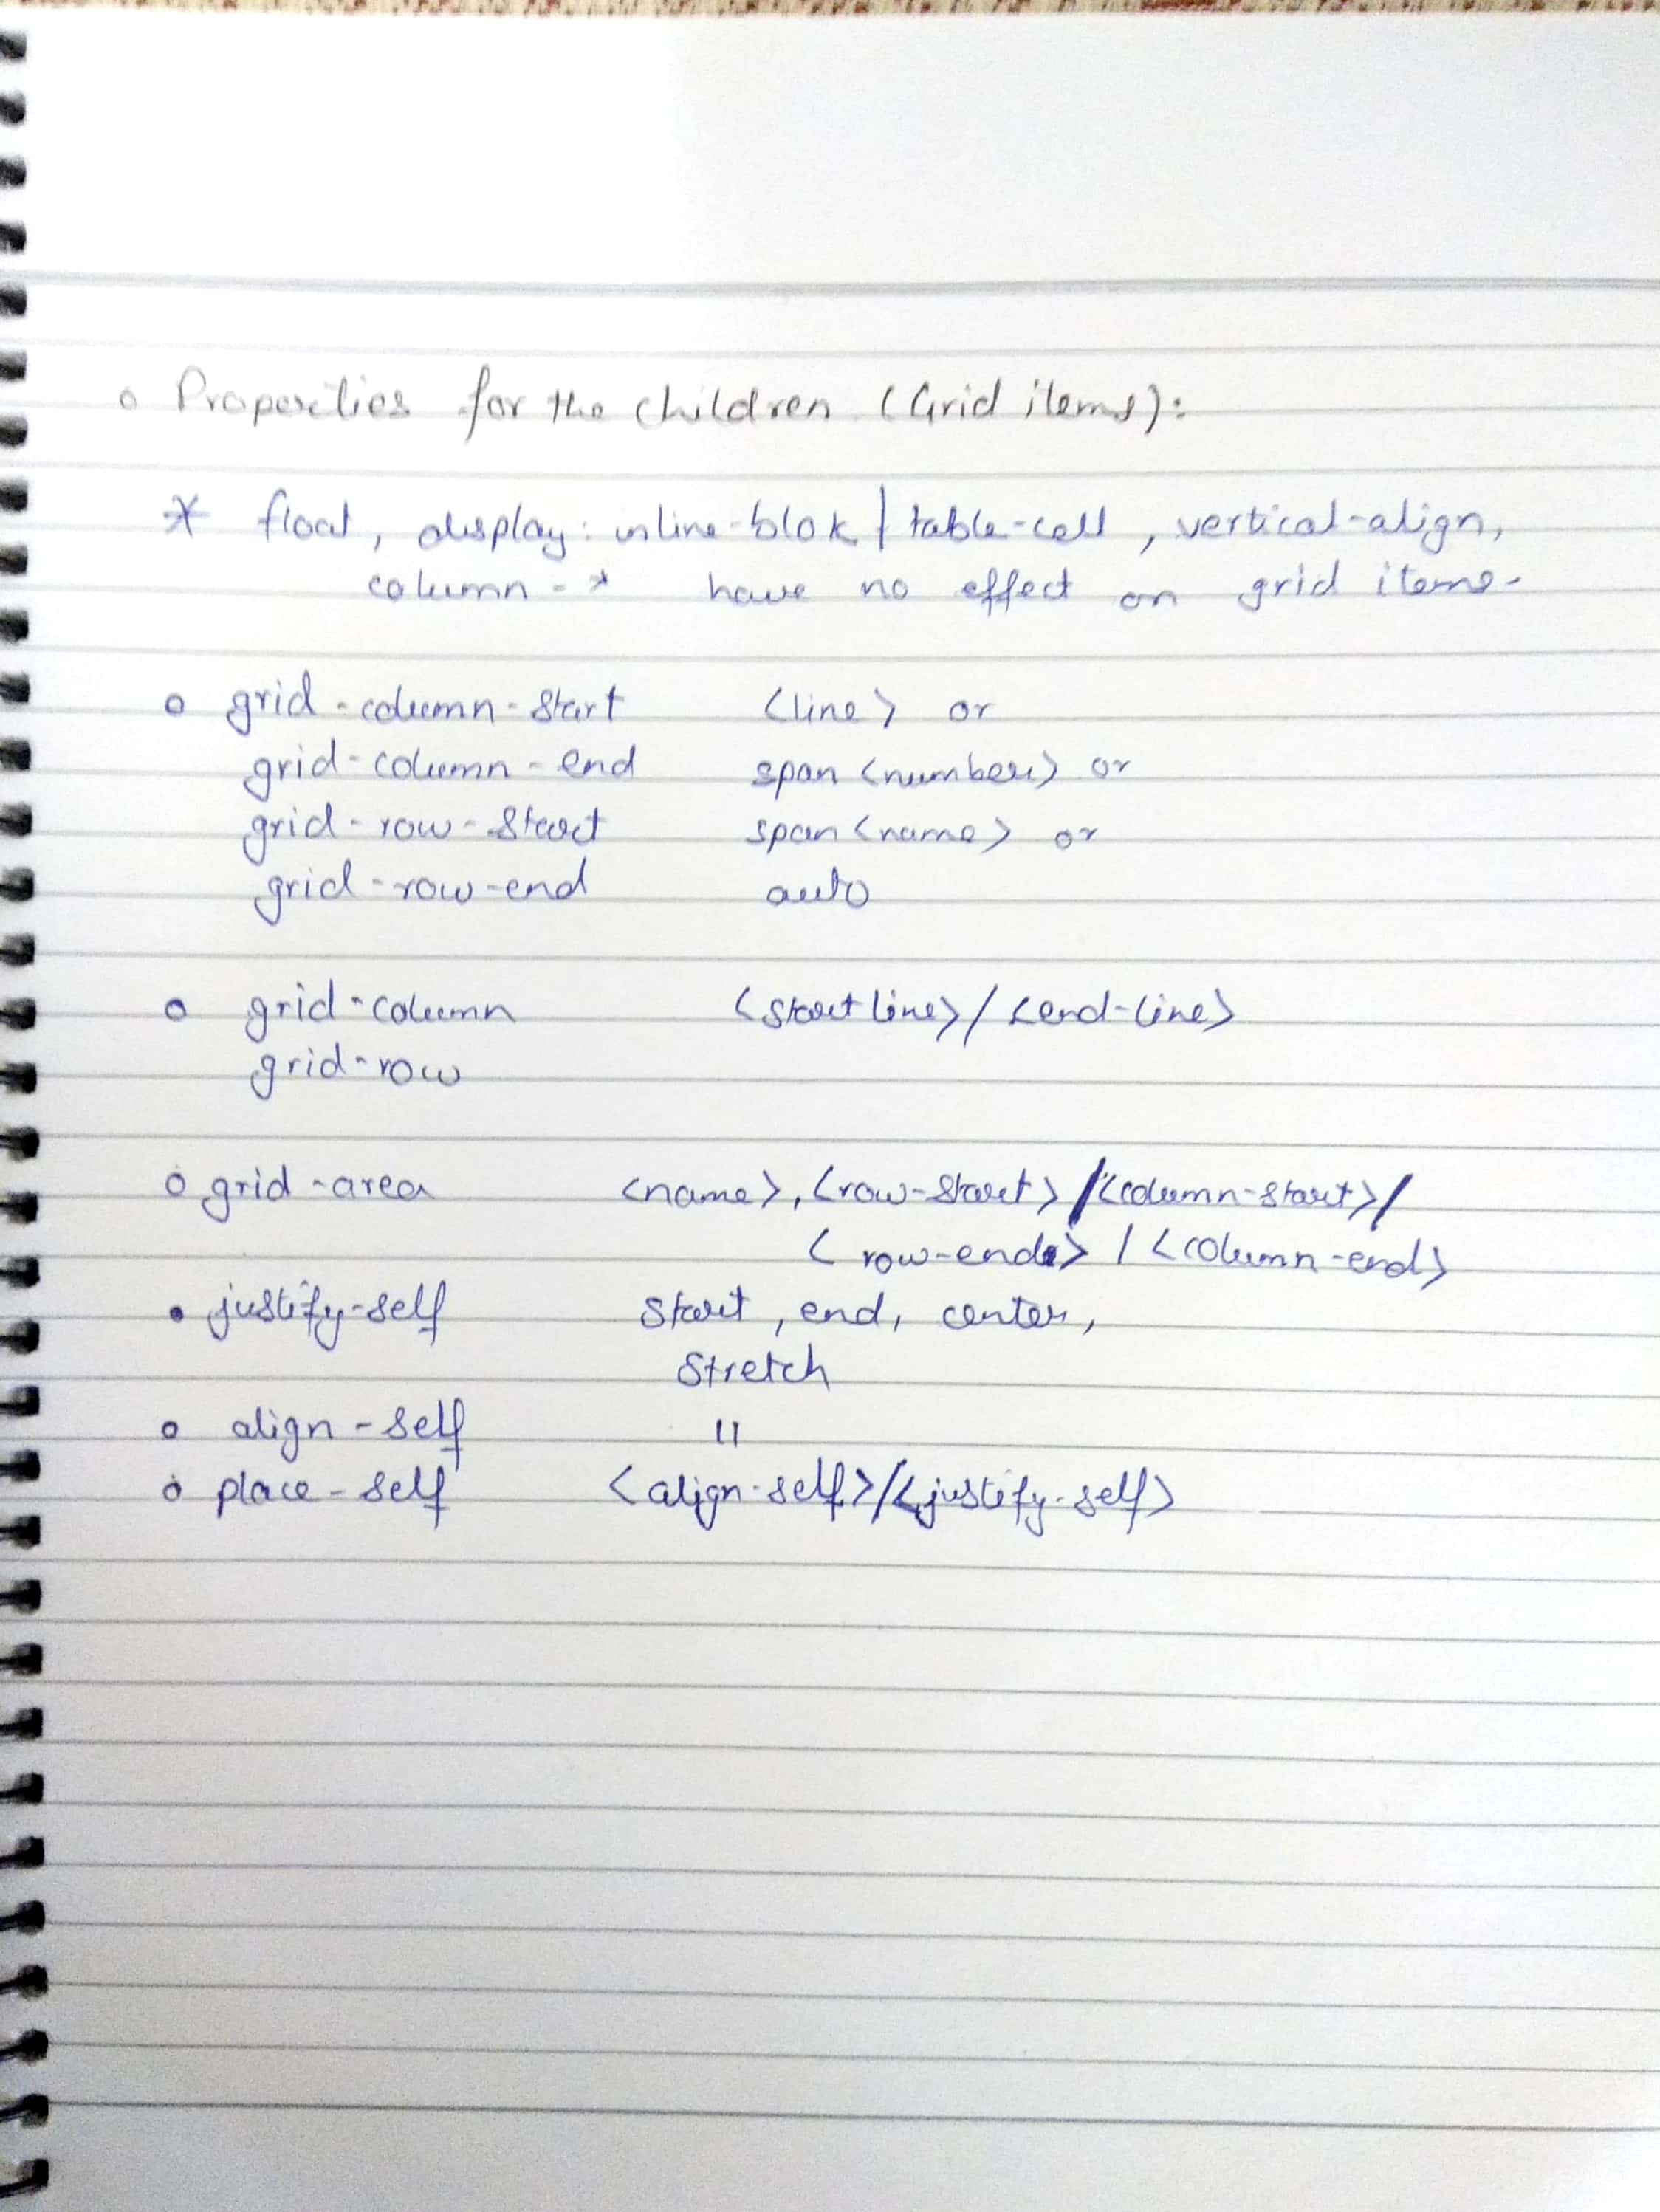 o Properties for the children (Grid items):
* float, display: inline-blok | table-cell, vertical-align,
column-* have no effect on grid items.
o grid-column-start <line> or
grid-column-end span <number> or
grid-row-start span <name> or
grid-row-end auto
o grid-column <start line> / <end-line>
grid-row
o grid-area <name>, <row-start> / <column-start> /
<row-end> / <column-end>
• justify-self start, end, center,
stretch
o align-self "
o place-self <align-self> / <justify-self>